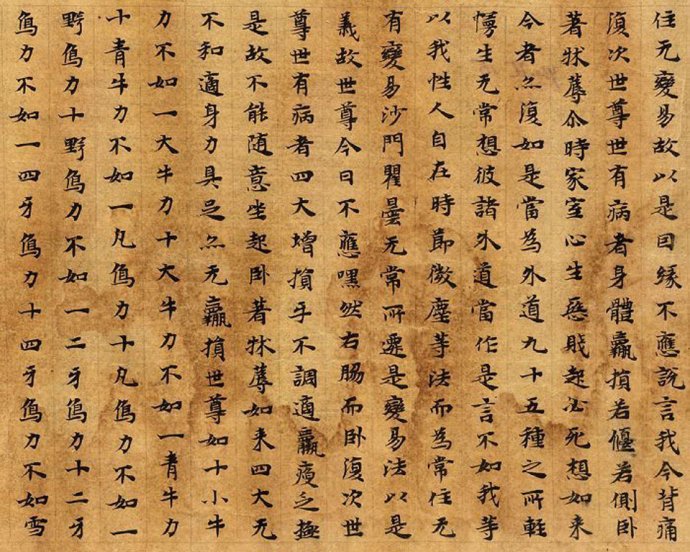 住无變易故以是囙緣不應說言我今背痛
復次世尊世有病者身體羸損若偃若側卧
著牀蓐尒時家室心生惡賎起必死想如来
今者亦復如是當為外道九十五種之所輕
慢生无常想彼諸外道當作是言不如我等
以我性人自在時節微塵等法而為常住无
有變易沙門瞿曇无常所遷是變易法以是
義故世尊今日不應嘿然右脇而卧復次世
尊世有病者四大增損㸦不調適羸瘦乏極
是故不能随意坐起卧著牀蓐如来四大无
不和適身力具足亦无羸損世尊如十小牛
力不如一大牛力十大牛力不如一青牛力
十青牛力不如一凡象力十凡象力不如一
野象力十野象力不如一二牙象力十二牙
象力不如一四牙象力十四牙象力不如雪